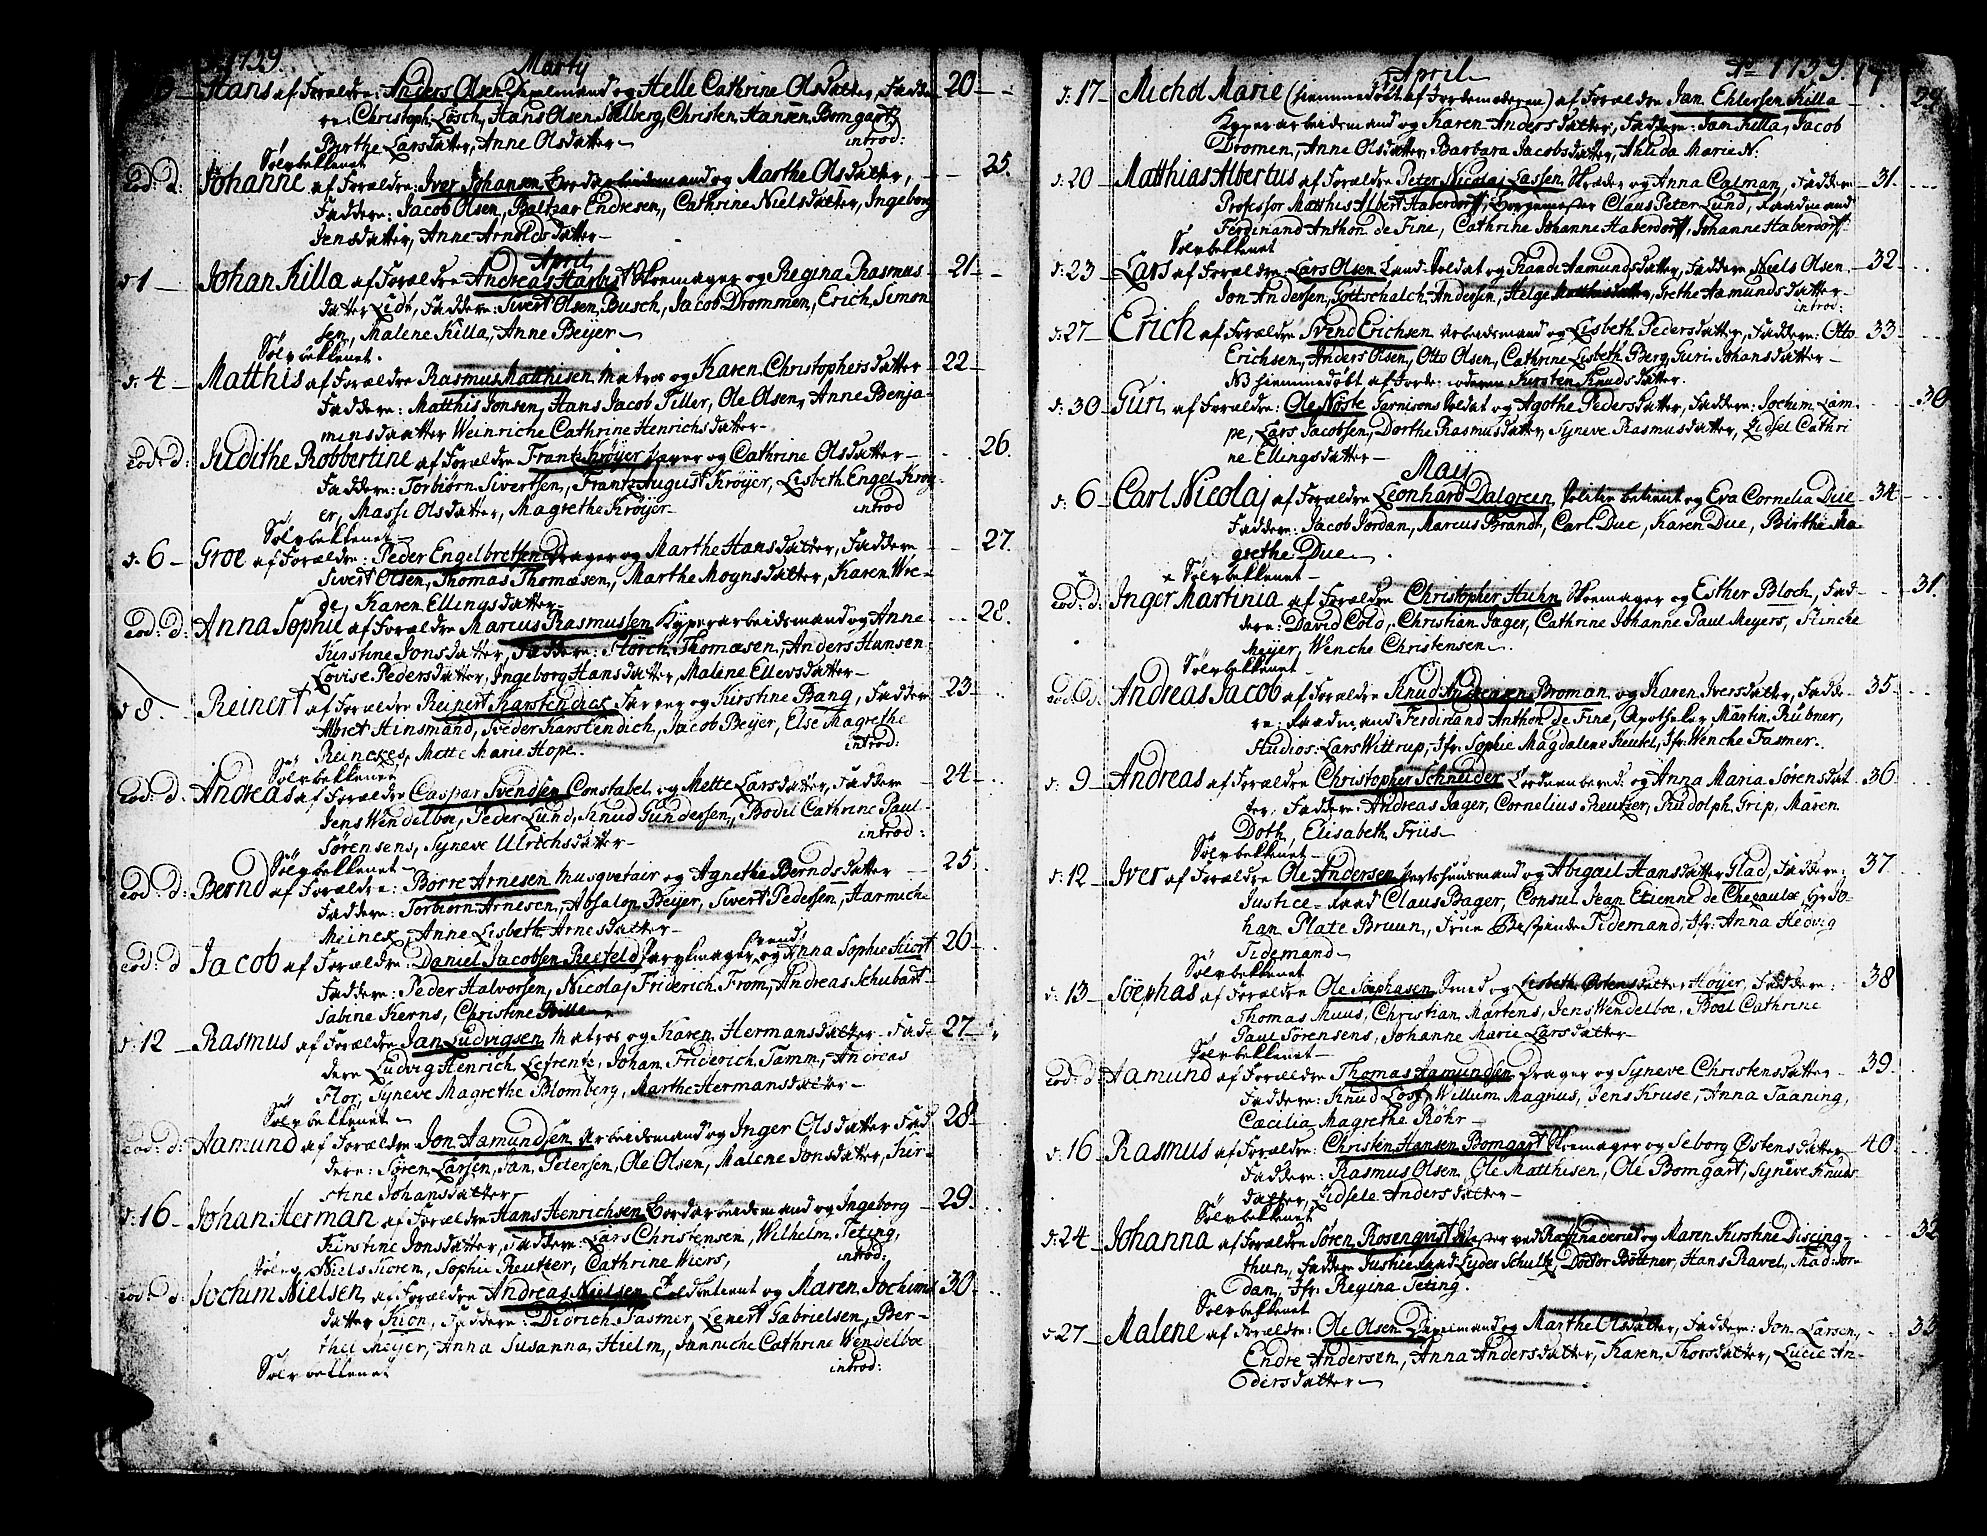 1759. Marty
Hans af Forældre: Anders Olsen og Helle Cathrine Olsdatter, Fadde- 20
re: Christoph Lösch, Hans Olsen Sælberg, Christen Hansen Bomgart
Birthe Larsdatter, Anne Olsdatter introd:
Sölvbekkenet
Eod: d: Johanne af Forældre: Iver Johansen og Marthe Olsdatter, 25.
Faddere: Jacob Olsen, Baltzar Endresen, Cathrine Nielsdatter, Ingeborg
Jensdatter, Anne Arnoldsdatter
April
d: 1 Johan Killa af Forældre Andreas Skoemager og Regina Rasmus- 21
datter Lidt, Faddere: Sivert Olsen Busch, Jacob Drommen, Erich Simon
sen, Malene Killa, Anne Beyer
Sölvbekkenet.
d: 4 Matthis af Forældre Rasmus Matthisen Matros og Karen Christophersdatter 22
Faddere: Matthis Jonsen, Hans Jacob Tiller, Ole Olsen, Anne Benja-
minsdaatter Weinriche Cathrine Henrichsdatter
Eod: d: Judithe Robbertine af Forældre Frantz Kröyer og Cathrine Olsdatter 26.
Faddere: Torbiörn Sivertsen, Frantz August Kröyer, Lisbeth Engel Kröy-
er, Masse Olsdatter, Magrethe Kröyer introd
Sölvbekkenet
d: 6 Groe af Forældre: Peder Engelbretsen Drager og Marthe Hansdatter, Faddere 27.
Sivert Olsen, Thomas Thomæsen, Marthe Moynsdatter, Karen Wre-
de, Karen Ellingsdatter
Eod: d: Anna Sophie af Forældre Marcus Rasmussen Kyperarbeidsmand og Anne 28.
Kirstine Jonsdatter, Faddere: Störch Thomæsen, Anders Hansen
Lovise Pedersdatter, Ingeborg Hansdatter, Malene Ellersdatter
d 8. Reinert af Forældre Reinert Karstendick Farver og Kirstine Bang, Faddere 23
Albret Hinsmand, Karstendich, Jacob Beyer, Else Magrethe
Reinckes, Mette Marie Hope. introd:
Sölvbekkenet
Eod: d. Andreas af Forældre Caspar Svendsen Constabel og Mette Larsdatter, Faddere 24
Jens Wendelboe, Peder Lund, Knud Gundersen, Bodil Cathrine Paul
Sörensens, Syneve Ulrichsdatter introd:
Sölvbekkenet
Eod: d: Bernd af Forældre: Börre Arnesen Musqvetair og Agnethe Berndsdatter 25
Faddere: Torbiörn Arnesen, Absalon Beyer, Sivert Pedersen, Harmiche
Meinex, Anne Lisbeth Arnesdatter
Eod: d Jacob af Forældre: Daniel Jacobsen Resfeld og Anna Sophie Kiort 26
Faddere: Peder Halvorsen, Nicolaj Friderich From, Andreas Schubart
Sabine Kerns, Christine Bille
d: 12 Rasmus af Forældre Jan Ludvigsen Matros og Karen Hermansdatter. Fad- 27
dere Ludvig Henrich Lefrentz, Johan Friderich Tamm, Andreas
Flor, Syneve Magrethe Blomberg, Marthe Hermansdatter
Sölvbekkenet
Eod: d: Aamund af Forældre Jon Aamundsen Arbeidsmand og Inger Olsdatter Fad 28
dere: Sören Larsen, Jan Petersen, Ole Olsen, Malene Jonsdatter, Kir-
stine Johansdatter
d: 16 Johan Herman af Forældre Hans Henrichsen og Ingeborg 29
Kirstine Jonsdatter, Faddere: Lars Christensen, Wilhelm Teting,
Niels Koren, Sophie Reutzer, Cathrine Wiers, introd:
Eod: d: Jochim Nielsen af Forældre Andreas Nielsen og Maren Jochims 30
datter Kion, Faddere: Didrich Fasmer, Lenert Gabrielsen, Ber-
thel Meyer, Anna Susanna Hielm, Janniche Cathrine Wendelboe
Sölvbekkenet introd:
April Ao 1759.
d: 17 Michol Marie (hiemmedöbt af Jordemoderen) af Forældre Jan Ehlersen Killa 29
Kyperarbeidsmand og Karen Andersdatter, Faddere: Jan Killa, Jacob
Dromen, Anne Olsdatter, Barbara Jacobsdatter, Ahlida Marie N:
d: 20 Matthias Albertus af Forældre Peter Nicolai Lassen og Anna Calman, Faddere 31.
Professor Matthis Albert Haberdorff, Borgemester Claus Peter Lund, Raadmand
Ferdinand Anthon de Fine, Cathrine Johanne Haberdorff, Johanne Haberdorff
Sölvbekkenet
d: 23 Lars af Forældre: Lars Olsen Land-Soldat og Randi Aamundsdatter, Faddere Niels Olsen 32
Jon Andersen, Gottschalch Andersen, Helge Matthisdatter, Grethe Aamundsdatter
introd:
d: 27 Erich af Forældre Svend Erichsen Arbeidsmand og Lisbeth Pedersdatter, Faddere: Otto 33
Erichsen, Anders Olsen, Otto Olsen, Cathrine Lisbeth Berg, Guri Johansdatter
NB hiemmedöbt af Kirsten Knudsdatter.
d: 30 Guri af Forældre: Ole Noste Garnisons Soldat og Agothe Pedersdatter, Faddere: Jochim Lam- 30
pe, Lars Jacobsen, Dorthe Rasmusdatter, Syneve Rasmusdatter, Lidsel Cathri
ne Ellingsdatter
Maij
d: 6 Carl Nicolaj af Forældre Leonhard Dalgreen Politie betient og Eva Cornelia Due 34
Faddere: Jacob Jordan, Marcus Brandt, Carl Due, Karen Due, Birthe Ma
grethe Due
Sölvbekkenet
Eod: d: Inger Martinia af Forældre Christopher Huhn Skoemager og Esther Bloch, Fad- 31.
dere: David Cold, Christian Jager, Cathrine Johanne Paul Meyers, Hincke
Meyer, Wenche Christensen
Sölvbekkenet
Eod: d: Andreas Jacob af Forældre Knud Andreasen Broman og Karen Iversdatter, Fadde- 35
re: Raadmand Ferdinand Anthon de Fine, Apotheker Martin Rübner,
Studios: Lars Wittrup, Jfr: Sophie Magdalene Keutel, Jfr: Wenche Fasmer.
d: 9 Andreas af Forældre Christopher Schneider og Anna Maria Sörensdat 36
ter. Faddere: Andreas Jager, Cornelius Reutzer, Rudolph Grip, Maren
Doth, Elisabeth Friis
Sölvbekkenet
d: 12 Iver af Forældre Ole Andersen og Abigail Hansdatter Glad, Faddere: 37
Justice-Raad Claus Bager, Consul Jean Etienne de Chezaulx, Hr Jo-
han Plate Bruun, Frue Tidemand, Jfr: Anna Hedvig
Tidemand
Sölvbekkenet
d: 13 Söephas af Forældre Ole Söephasen Smed og Lisbeth Östensdatter Höyer, Faddere: 38
Thomas Muus, Christian Martens, Jens Wendelboe, Boel Cathrine
Paul Sörensens, Johanne Marie Larsdatter
Sölvbekkenet
Eod: d: Aamund af Forældre Thomas Aamundsen Drager og Syneve Christensdatter 39.
Faddere: Knud Willum Magnus, Jens Kruse, Anna Taaning,
Cæcilia Magrethe Röhr
d: 16 Rasmus af Forældre: Christen Hansen Bomgart Skoemager og Seborg Östensdatter 40.
Faddere: Rasmus Olsen, Ole Matthisen, Ole Bomgart, Syneve Knuds
datter, Lidsele Andersdatter
Sölvbekkenet
d: 24 Johanna af Forældre Sören Rosenqvist Mester ved Raffinaderiet og Maren Kirstine Discing- 32
thun, Faddere Justice Raad Eyder Schultz, Doctor Böttner, Hans Ravel, Mad: Jor-
dan, Jfr: Regina Teting.
Sölvbekkenet
d: 27 Malene af Forældre: Ole Olsen og Marthe Olsdatter, Faddere: Jon Larsen, 33
Endre Andersen, Anna Andersdatter, Karen Thorsdatter, Lucie An-
dersdatter